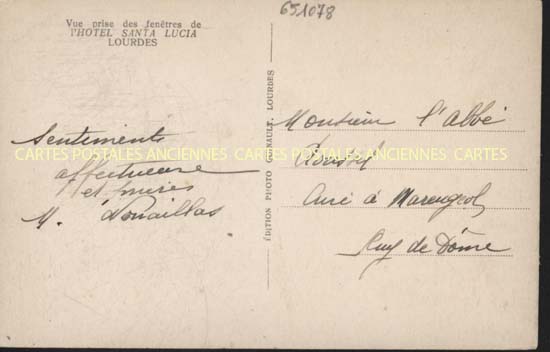 651078
Vue prise des fenêtres de
l'HOTEL SANTA LUCIA
LOURDES
Sentiments
affectueux
et
M.
ÉDITION PHOTO LOURDES
Monsieur l'Abbé
Curé à
Puy de Dôme
CARTES POSTALES ANCIENNES CARTES POSTALES ANCIENNES CARTES